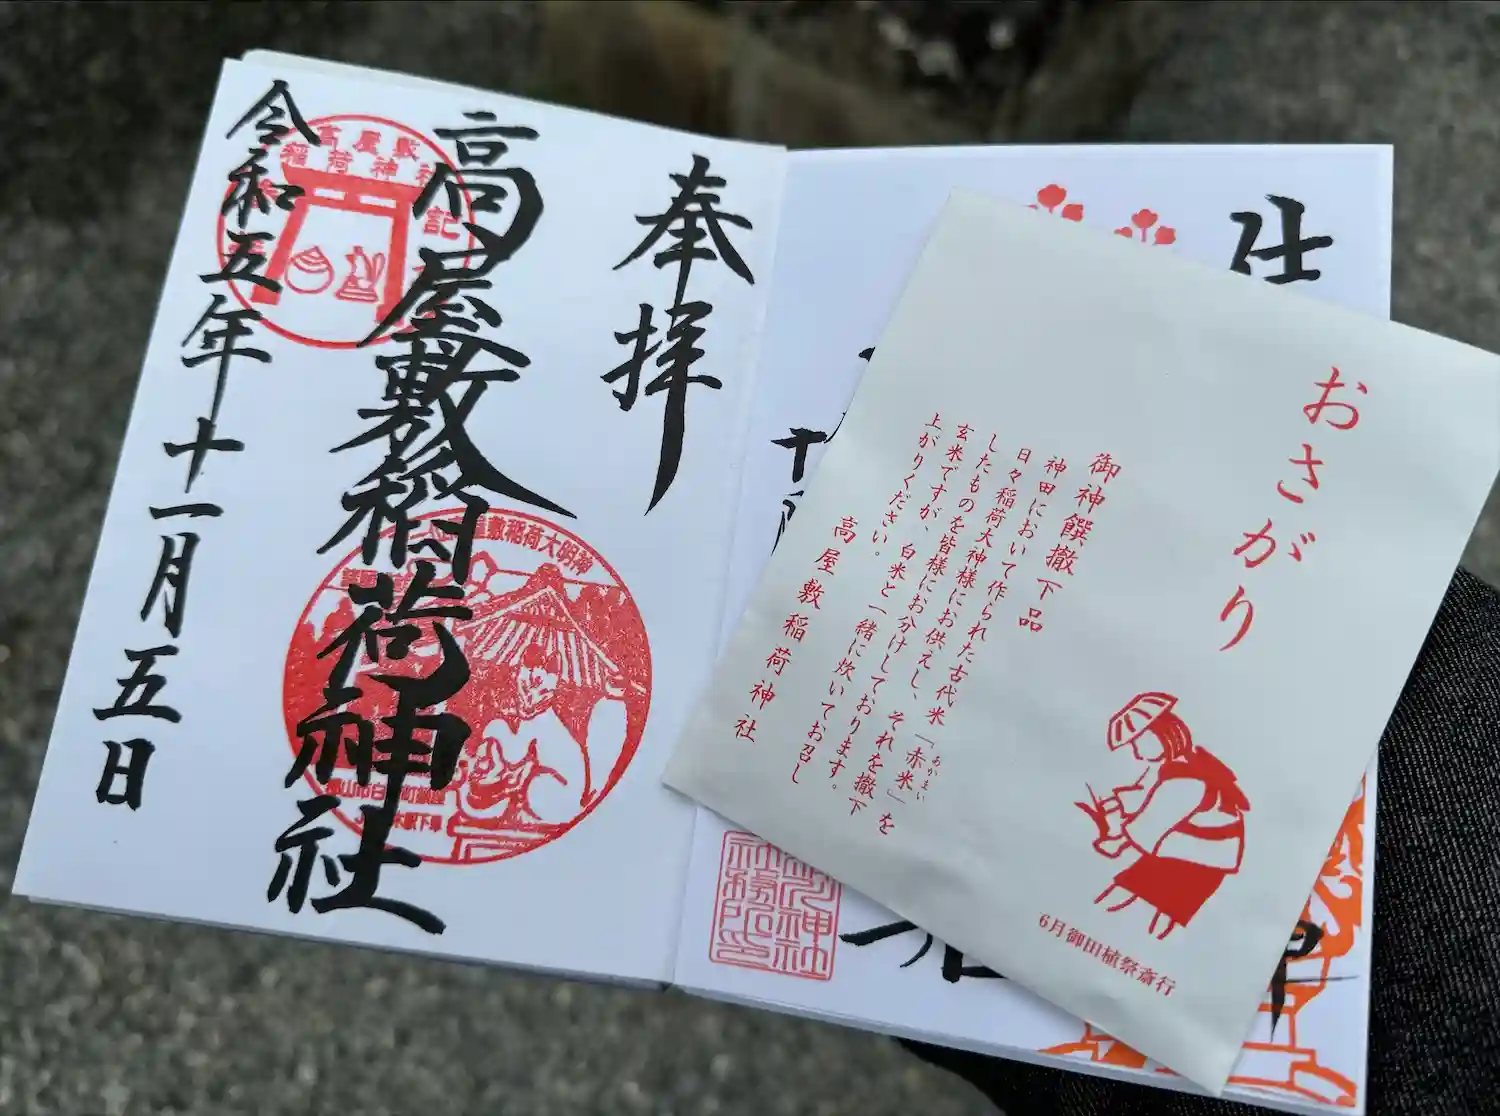 奉拝
高屋敷稲荷神社
令和五年十一月五日
高屋敷
稲荷神社
記
屋敷稲荷大明神
仕
おさがり
御神饌撤下品
神田において作られた古代米「赤米」を
あかまい
日々稲荷大神様にお供えし、それを撤下
したものを皆様にお分けしております。
玄米ですが、白米と一緒に炊いてお召し
上がりください。
高屋敷稲荷神社
6月御田植祭斎行